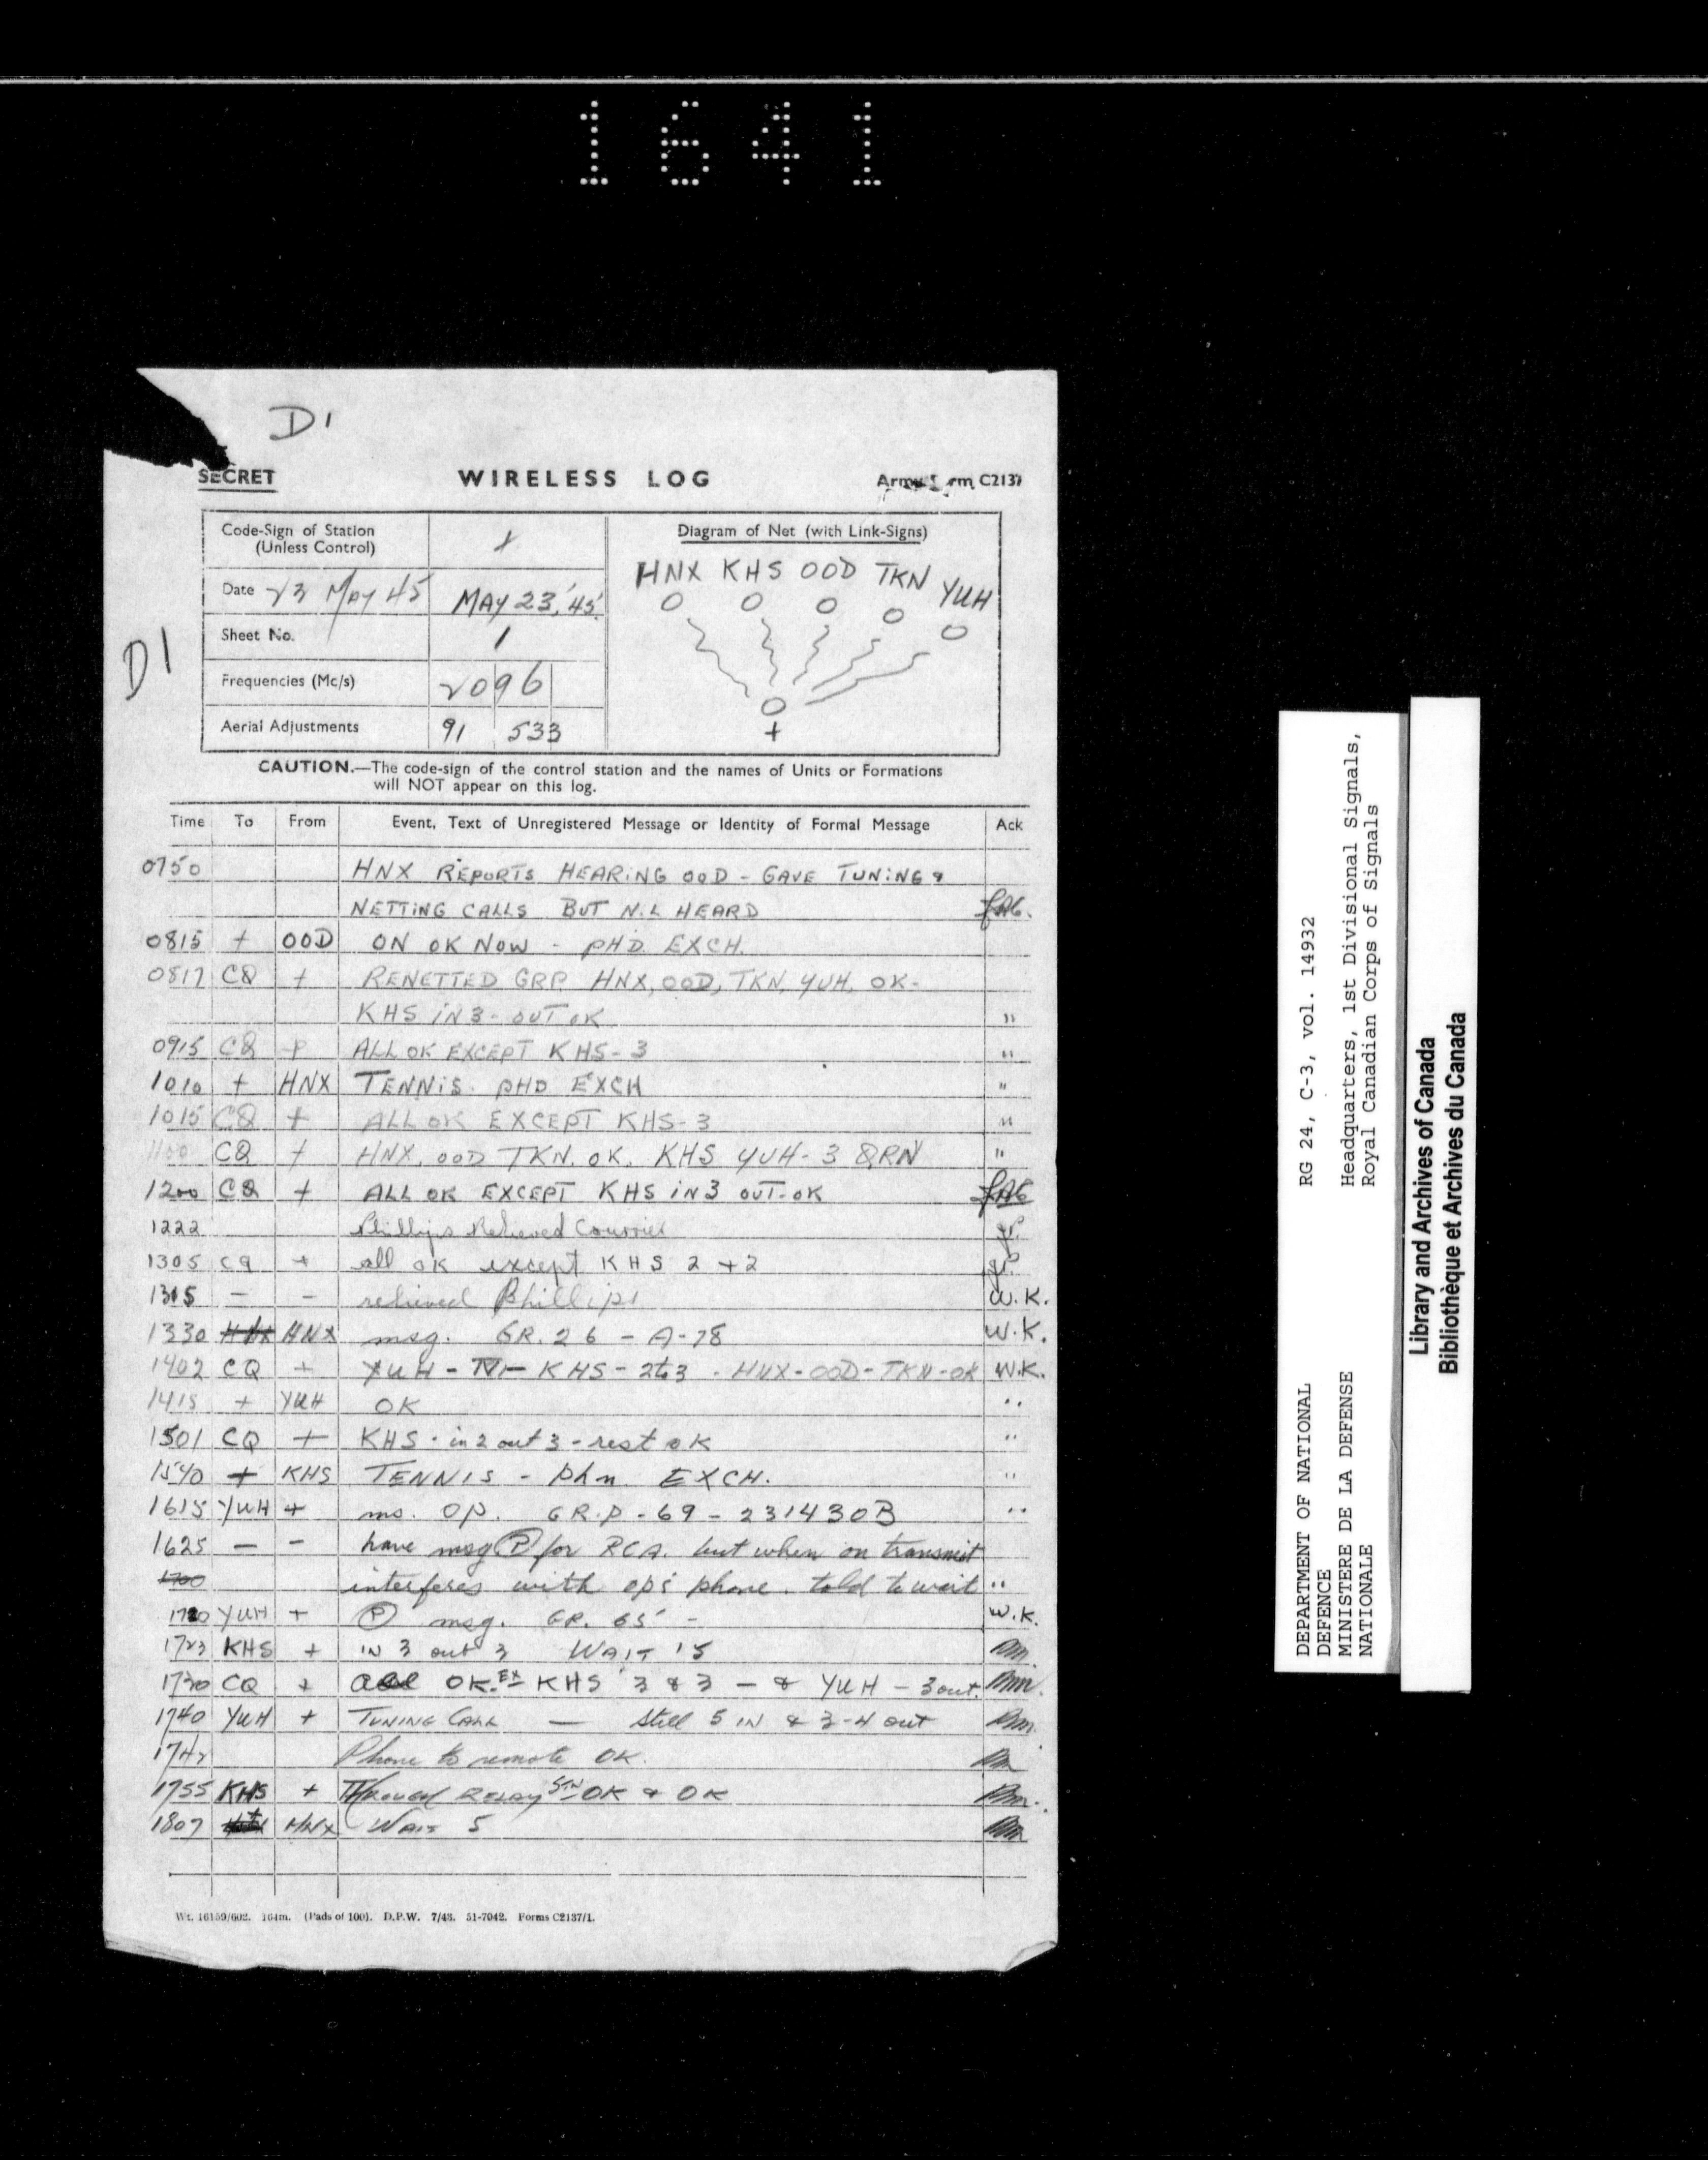 1641
D1
SECRET WIRELESS LOG Army Form C2137
Code-Sign of Station (Unless Control) +
Date 23 May 45 MAY 23, '45.
Sheet No. 1
Frequencies (Mc/s) 2096
Aerial Adjustments 91 533
D1
Diagram of Net (with Link-Signs)
HNX KHS OOD TKN YUH
+
CAUTION.—The code-sign of the control station and the names of Units or Formations
will NOT appear on this log.
Time To From Event, Text of Unregistered Message or Identity of Formal Message Ack
0750 HNX REPORTS HEARING OOD - GAVE TUNING &
NETTING CALLS BUT N.L HEARD
0815 + OOD ON OK NOW - PHD EXCH.
0817 CQ + RENETTED GRP HNX, OOD, TKN, YUH, OK-
KHS IN 3 - OUT OK "
0915 CQ + ALL OK EXCEPT KHS-3 "
1010 + HNX TENNIS. PHD EXCH "
1015 CQ + ALL OK EXCEPT KHS-3 "
1100 CQ + HNX, OOD TKN. OK. KHS YUH-3 QRN "
1200 CQ + ALL OK EXCEPT KHS IN 3 OUT-OK
1222 Phillips Relieved
1305 cq + all ok except KHS 2 + 2
1315 - - relieved Phillips W.K.
1330 HNX msg. GR. 26 - A-78 W.K.
1402 CQ + YUH - - KHS - 2to3 - HNX-OOD-TKN-OK W.K.
1415 + YUH OK "
1501 CQ + KHS - in 2 out 3 - rest ok "
1540 + KHS TENNIS - Phn EXCH. "
1615 YUH + ms. OP. GR.P - 69 - 231430B "
1625 - - have msg (P) for RCA. but when on transmit
1700 interferes with ops phone. told to wait "
1720 YUH + (P) msg. GR. 65 - W.K.
1723 KHS + IN 3 out 3 WAIT 15
1730 CQ + all OK. EX KHS 3 & 3 - & YUH - 3 out.
1740 YUH + TUNING CALL — Still 5 IN & 3-4 out
1742 Phone to remote OK.
1755 KHS + Through RELAY STN OK & OK
1807 + HNX WAIT 5
Wt. 16159/602. 164m. (Pads of 100). D.P.W. 7/43. 51-7042. Forms C2137/1.
DEPARTMENT OF NATIONAL RG 24, C-3, vol. 14932
DEFENCE
MINISTERE DE LA DEFENSE Headquarters, 1st Divisional Signals,
NATIONALE Royal Canadian Corps of Signals
Library and Archives of Canada
Bibliothèque et Archives du Canada